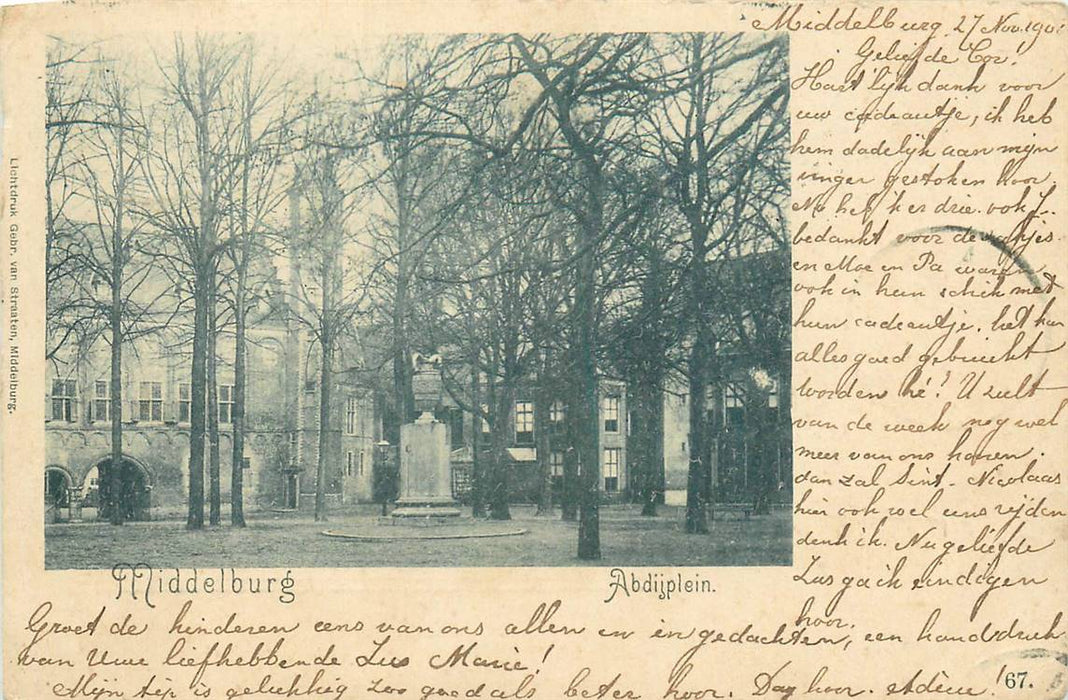 Middelburg 27 Nov. 190
Geliefde Cor!
Hart'lijk dank voor
uw cadeautje, ik heb
hem dadelijk aan mijn
vinger gestoken hoor,
ook
bedankt voor de
en Moe en Pa waren
ook in hun schik met
hun cadeautje. het kan
alles goed gebruikt
worden hé? U zult
van de week nog wel
meer van ons hooren.
dan zal Sint. Nicolaas
hier ook wel eens rijden
denk ik. Nu geliefde
Zus ga ik eindigen
hoor.
Lichtdruk Gebr. van Straaten, Middelburg.
Middelburg Abdijplein.
Groet de kinderen eens van ons allen en in gedachten, een handdruk
van Uwe liefhebbende Zus Marie!
Mijn tip is gelukkig zoo goed als beter hoor. Dag hoor. adieu
67.